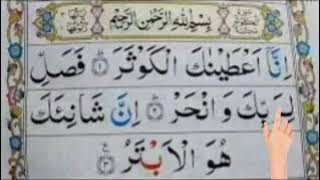 بِسْمِ اللّٰهِ الرَّحْمٰنِ الرَّحِيْمِ
اِنَّاۤ اَعْطَيْنٰكَ الْكَوْثَرَ ۝۱ فَصَلِّ
لِرَبِّكَ وَ انْحَرْ ۝۲ اِنَّ شَانِئَكَ
هُوَ الْاَبْتَرُ ۝۳